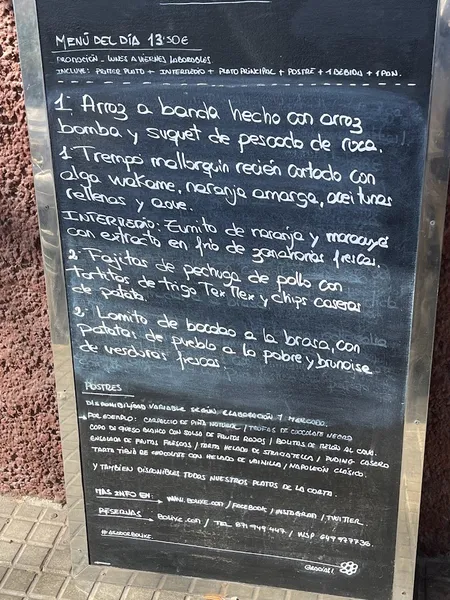 MENÚ DEL DÍA 13'50€
PROMOCIÓN LUNES A VIERNES LABORABLES
INCLUYE: PRIMER PLATO + INTERMEDIO + PLATO PRINCIPAL + POSTRE + 1 BEBIDA + 1 PAN.
1: Arroz a banda hecho con arroz
bomba y suquet de pescado de roca.
1: Trempo mallorquín recién cortado con
alga wakame, naranja amarga, aceitunas
rellenas y
INTERMEDIO: Zumito de naranja y maracuyá
con extracto en frío de zanahorias frescas.
2: Fajitas de pechuga de pollo con
tortitas de trigo Tex Mex y chips caseras
de patata.
2: Lomito de bacalao a la brasa, con
patatas de pueblo a lo pobre y brunoise
de verduras frescas.
POSTRES
DISPONIBILIDAD VARIABLE SEGÚN ELABORACIÓN Y MERCADO.
POR EJEMPLO: CARPACCIO DE PIÑA NATURAL / TRUFAS DE CHOCOLATE NEGRO
COPA DE QUESO BLANCO CON SALSA DE FRUTOS ROJOS / BOLITAS DE MELÓN AL CAVA.
ENSALADA DE FRUTAS FRESCAS / TARTA HELADA DE STRACIATELLA / PUDING CASERO
TARTA TIBIA DE CHOCOLATE CON HELADO DE VAINILLA / NAPOLEÓN CLÁSICO.
Y TAMBIÉN DISPONIBLES TODOS NUESTROS PLATOS DE LA CARTA.
MÁS INFO EN: WWW. .COM / FACEBOOK / INSTAGRAM / TWITTER.
RESERVAS .COM / TEL 871 949 447 / WSP 649 977736.
GRACIAS!